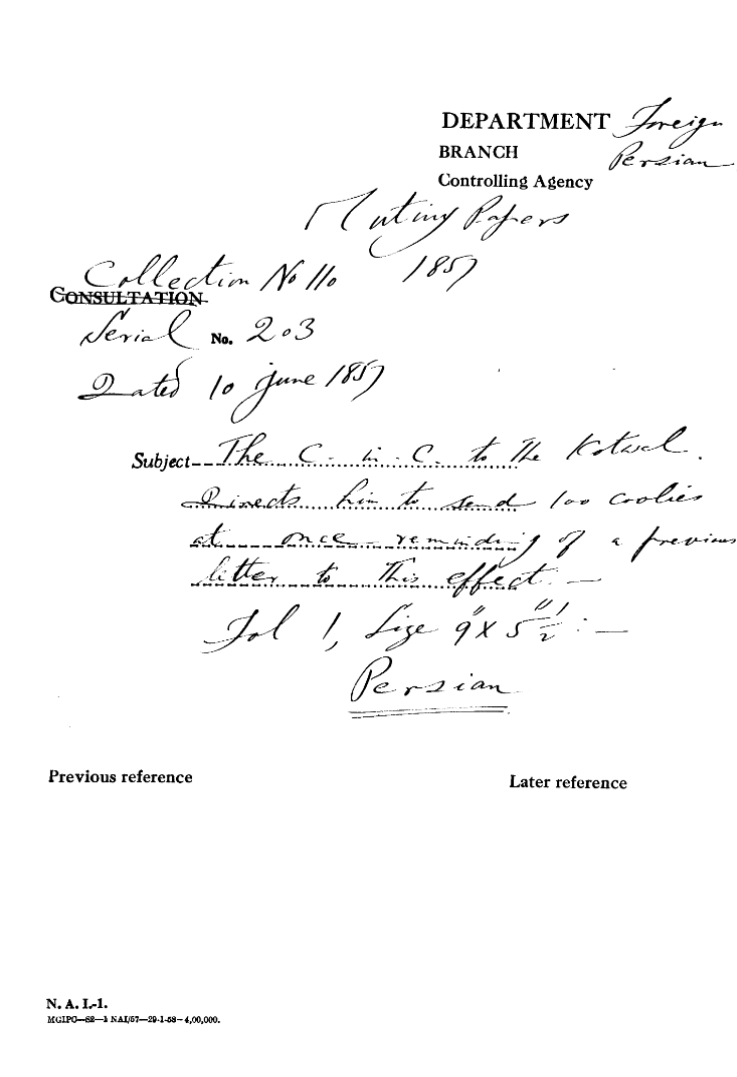 DEPARTMENT Foreign
BRANCH Persian
Controlling Agency
Mutiny Papers
Collection No 110 1857
CONSULTATION
Serial No. 203
Dated 10 June 1857
Subject The C. in. C. to the Kotwal.
Directs him to send 100 coolies
at once reminding of a previous
letter to this effect. —
Fol 1, Size 9" X 5 1/2" : —
Persian
Previous reference Later reference
N. A. I.-1.
MGIPC—S2—1 NAI/57—29-1-58—4,00,000.